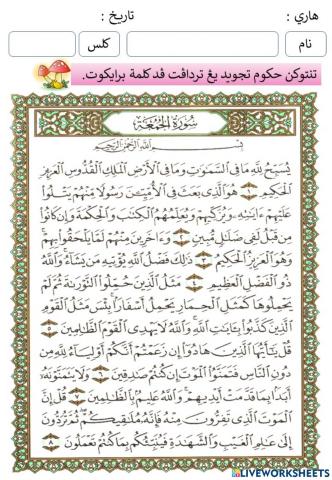 هاري :
تاريخ :
نام
كلس
تنتوكن حكوم تجويد يڠ تردافت ڤد كلمة برايكوت.
سُورَةُ الجُمُعَةِ
بِسْمِ اللَّهِ الرَّحْمَٰنِ الرَّحِيمِ
يُسَبِّحُ لِلَّهِ مَا فِي السَّمَٰوَٰتِ وَمَا فِي الْأَرْضِ الْمَلِكِ الْقُدُّوسِ الْعَزِيزِ
الْحَكِيمِ ١ هُوَ الَّذِي بَعَثَ فِي الْأُمِّيِّينَ رَسُولًا مِّنْهُمْ يَتْلُوا
عَلَيْهِمْ ءَايَٰتِهِ وَيُزَكِّيهِمْ وَيُعَلِّمُهُمُ الْكِتَٰبَ وَالْحِكْمَةَ وَإِن كَانُوا
مِن قَبْلُ لَفِي ضَلَٰلٍ مُّبِينٍ ٢ وَءَاخَرِينَ مِنْهُمْ لَمَّا يَلْحَقُوا بِهِمْ
وَهُوَ الْعَزِيزُ الْحَكِيمُ ٣ ذَٰلِكَ فَضْلُ اللَّهِ يُؤْتِيهِ مَن يَشَاءُ وَاللَّهُ
ذُو الْفَضْلِ الْعَظِيمِ ٤ مَثَلُ الَّذِينَ حُمِّلُوا التَّوْرَىٰةَ ثُمَّ لَمْ
يَحْمِلُوهَا كَمَثَلِ الْحِمَارِ يَحْمِلُ أَسْفَارًا بِئْسَ مَثَلُ الْقَوْمِ
الَّذِينَ كَذَّبُوا بِـَٔايَٰتِ اللَّهِ وَاللَّهُ لَا يَهْدِي الْقَوْمَ الظَّٰلِمِينَ ٥
قُلْ يَٰأَيُّهَا الَّذِينَ هَادُوا إِن زَعَمْتُمْ أَنَّكُمْ أَوْلِيَاءُ لِلَّهِ مِن
دُونِ النَّاسِ فَتَمَنَّوُا الْمَوْتَ إِن كُنتُمْ صَٰدِقِينَ ٦ وَلَا يَتَمَنَّوْنَهُ
أَبَدًا بِمَا قَدَّمَتْ أَيْدِيهِمْ وَاللَّهُ عَلِيمٌ بِالظَّٰلِمِينَ ٧ قُلْ إِنَّ
الْمَوْتَ الَّذِي تَفِرُّونَ مِنْهُ فَإِنَّهُ مُلَٰقِيكُمْ ثُمَّ تُرَدُّونَ
إِلَىٰ عَٰلِمِ الْغَيْبِ وَالشَّهَٰدَةِ فَيُنَبِّئُكُم بِمَا كُنتُمْ تَعْمَلُونَ ٨
LIVEWORKSHEETS